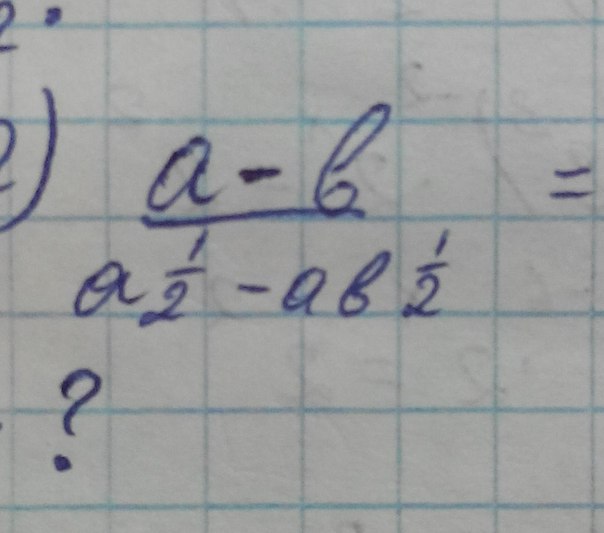 2.
2) a - b
a^1/2 - ab^1/2 =
?